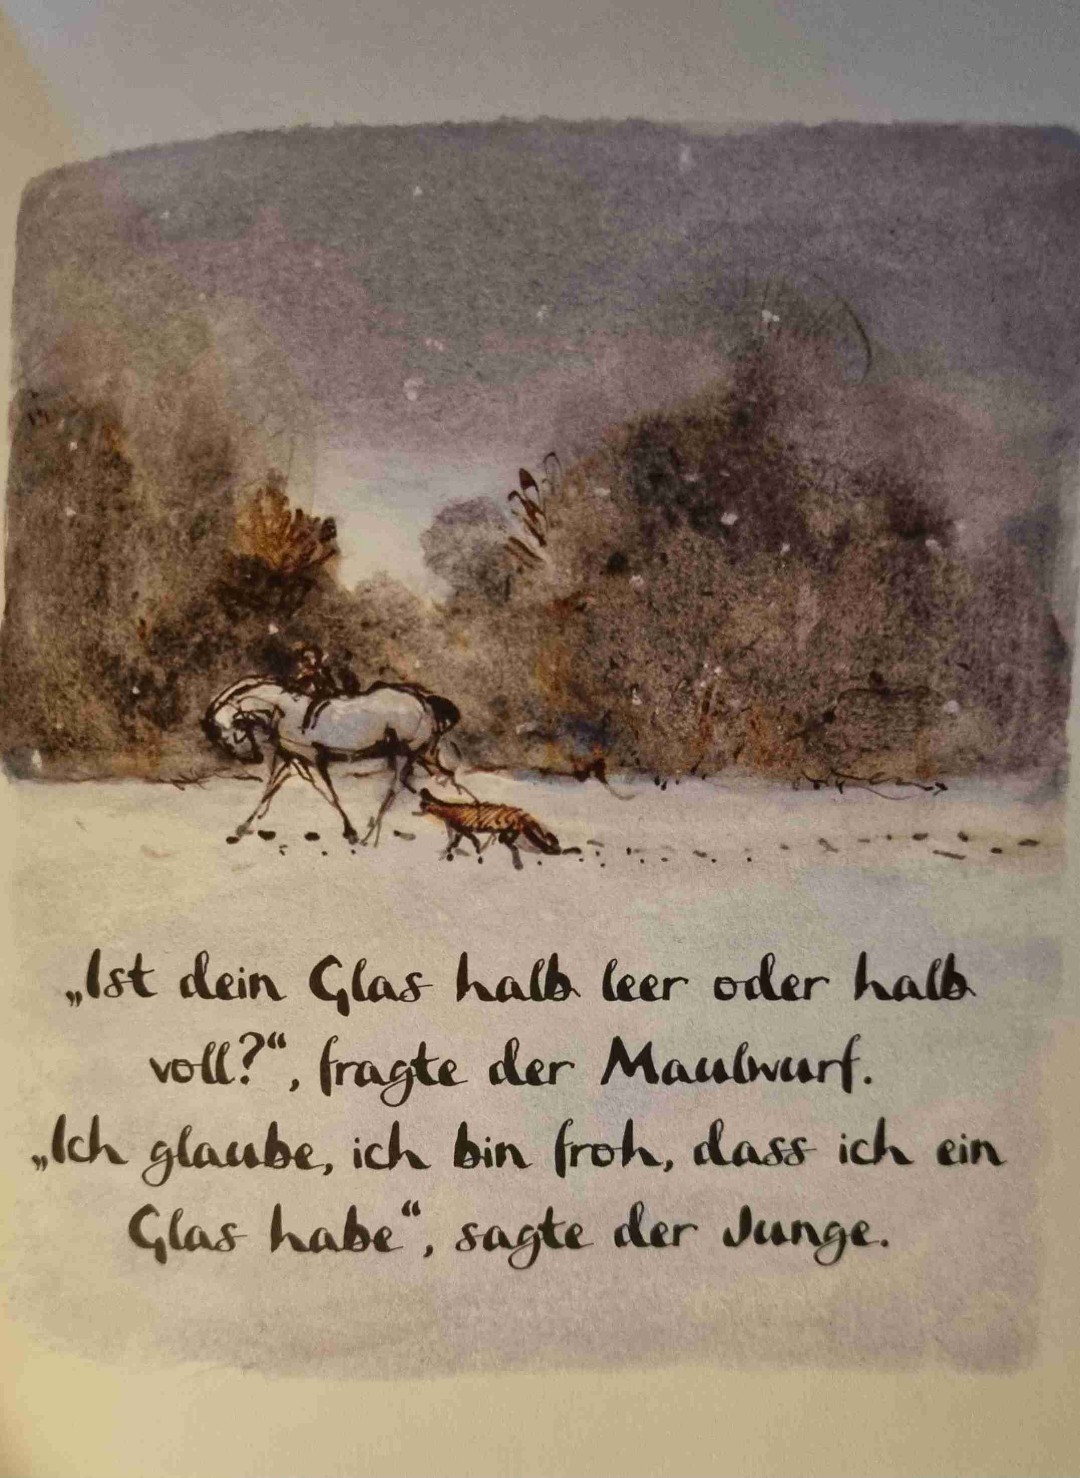 „Ist dein Glas halb leer oder halb
voll?“, fragte der Maulwurf.
„Ich glaube, ich bin froh, dass ich ein
Glas habe“, sagte der Junge.